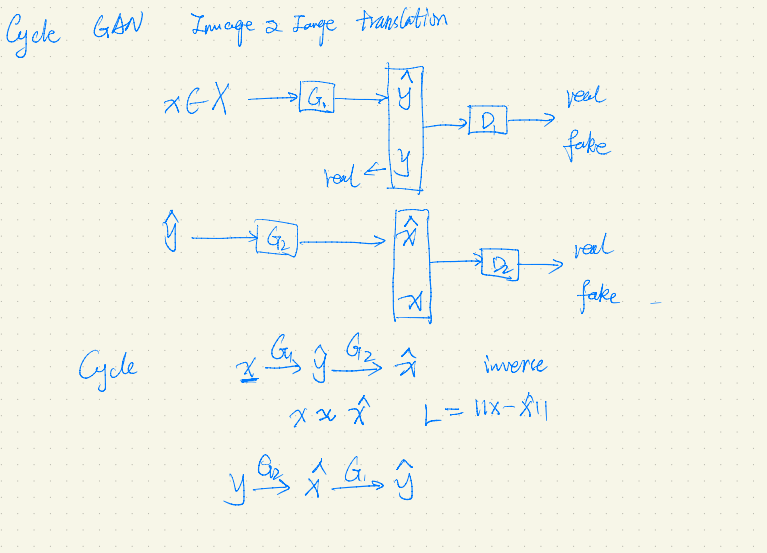 Cycle GAN Image 2 Image translation
x∈X → G₁ → ŷ
D₁ → real
fake
real ← y
ŷ → G₂ → x̂
D₂ → real
x fake
Cycle x G₁→ ŷ G₂→ x̂ inverse
x ≈ x̂ L = ||x-x̂||
y G₂→ x̂ G₁→ ŷ